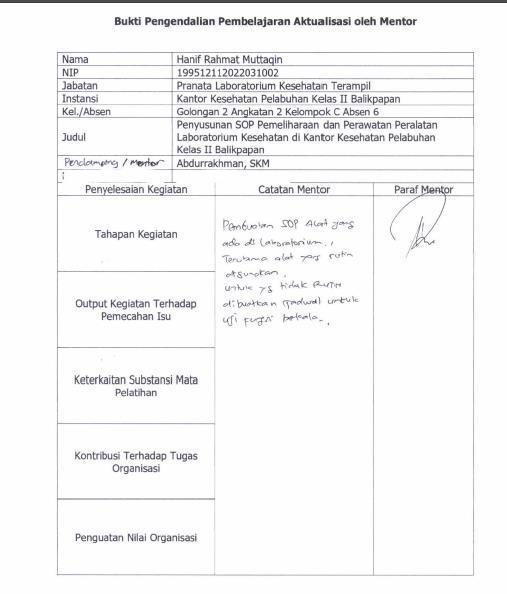 Bukti Pengendalian Pembelajaran Aktualisasi oleh Mentor
Nama Hanif Rahmat Muttaqin
NIP 199512112022031002
Jabatan Pranata Laboratorium Kesehatan Terampil
Instansi Kantor Kesehatan Pelabuhan Kelas II Balikpapan
Kel./Absen Golongan 2 Angkatan 2 Kelompok C Absen 6
Judul Penyusunan SOP Pemeliharaan dan Perawatan Peralatan
Laboratorium Kesehatan di Kantor Kesehatan Pelabuhan
Kelas II Balikpapan
Pendamping / Mentor Abdurrakhman, SKM
:
Penyelesaian Kegiatan Catatan Mentor Paraf Mentor
Tahapan Kegiatan
Pembuatan SOP Alat yang
ada di Laboratorium,
Terutama alat yang rutin
digunakan,
untuk yg tidak Rutin
dibuatkan jadwal untuk
uji fungsi berkala.
Output Kegiatan Terhadap
Pemecahan Isu
Keterkaitan Substansi Mata
Pelatihan
Kontribusi Terhadap Tugas
Organisasi
Penguatan Nilai Organisasi